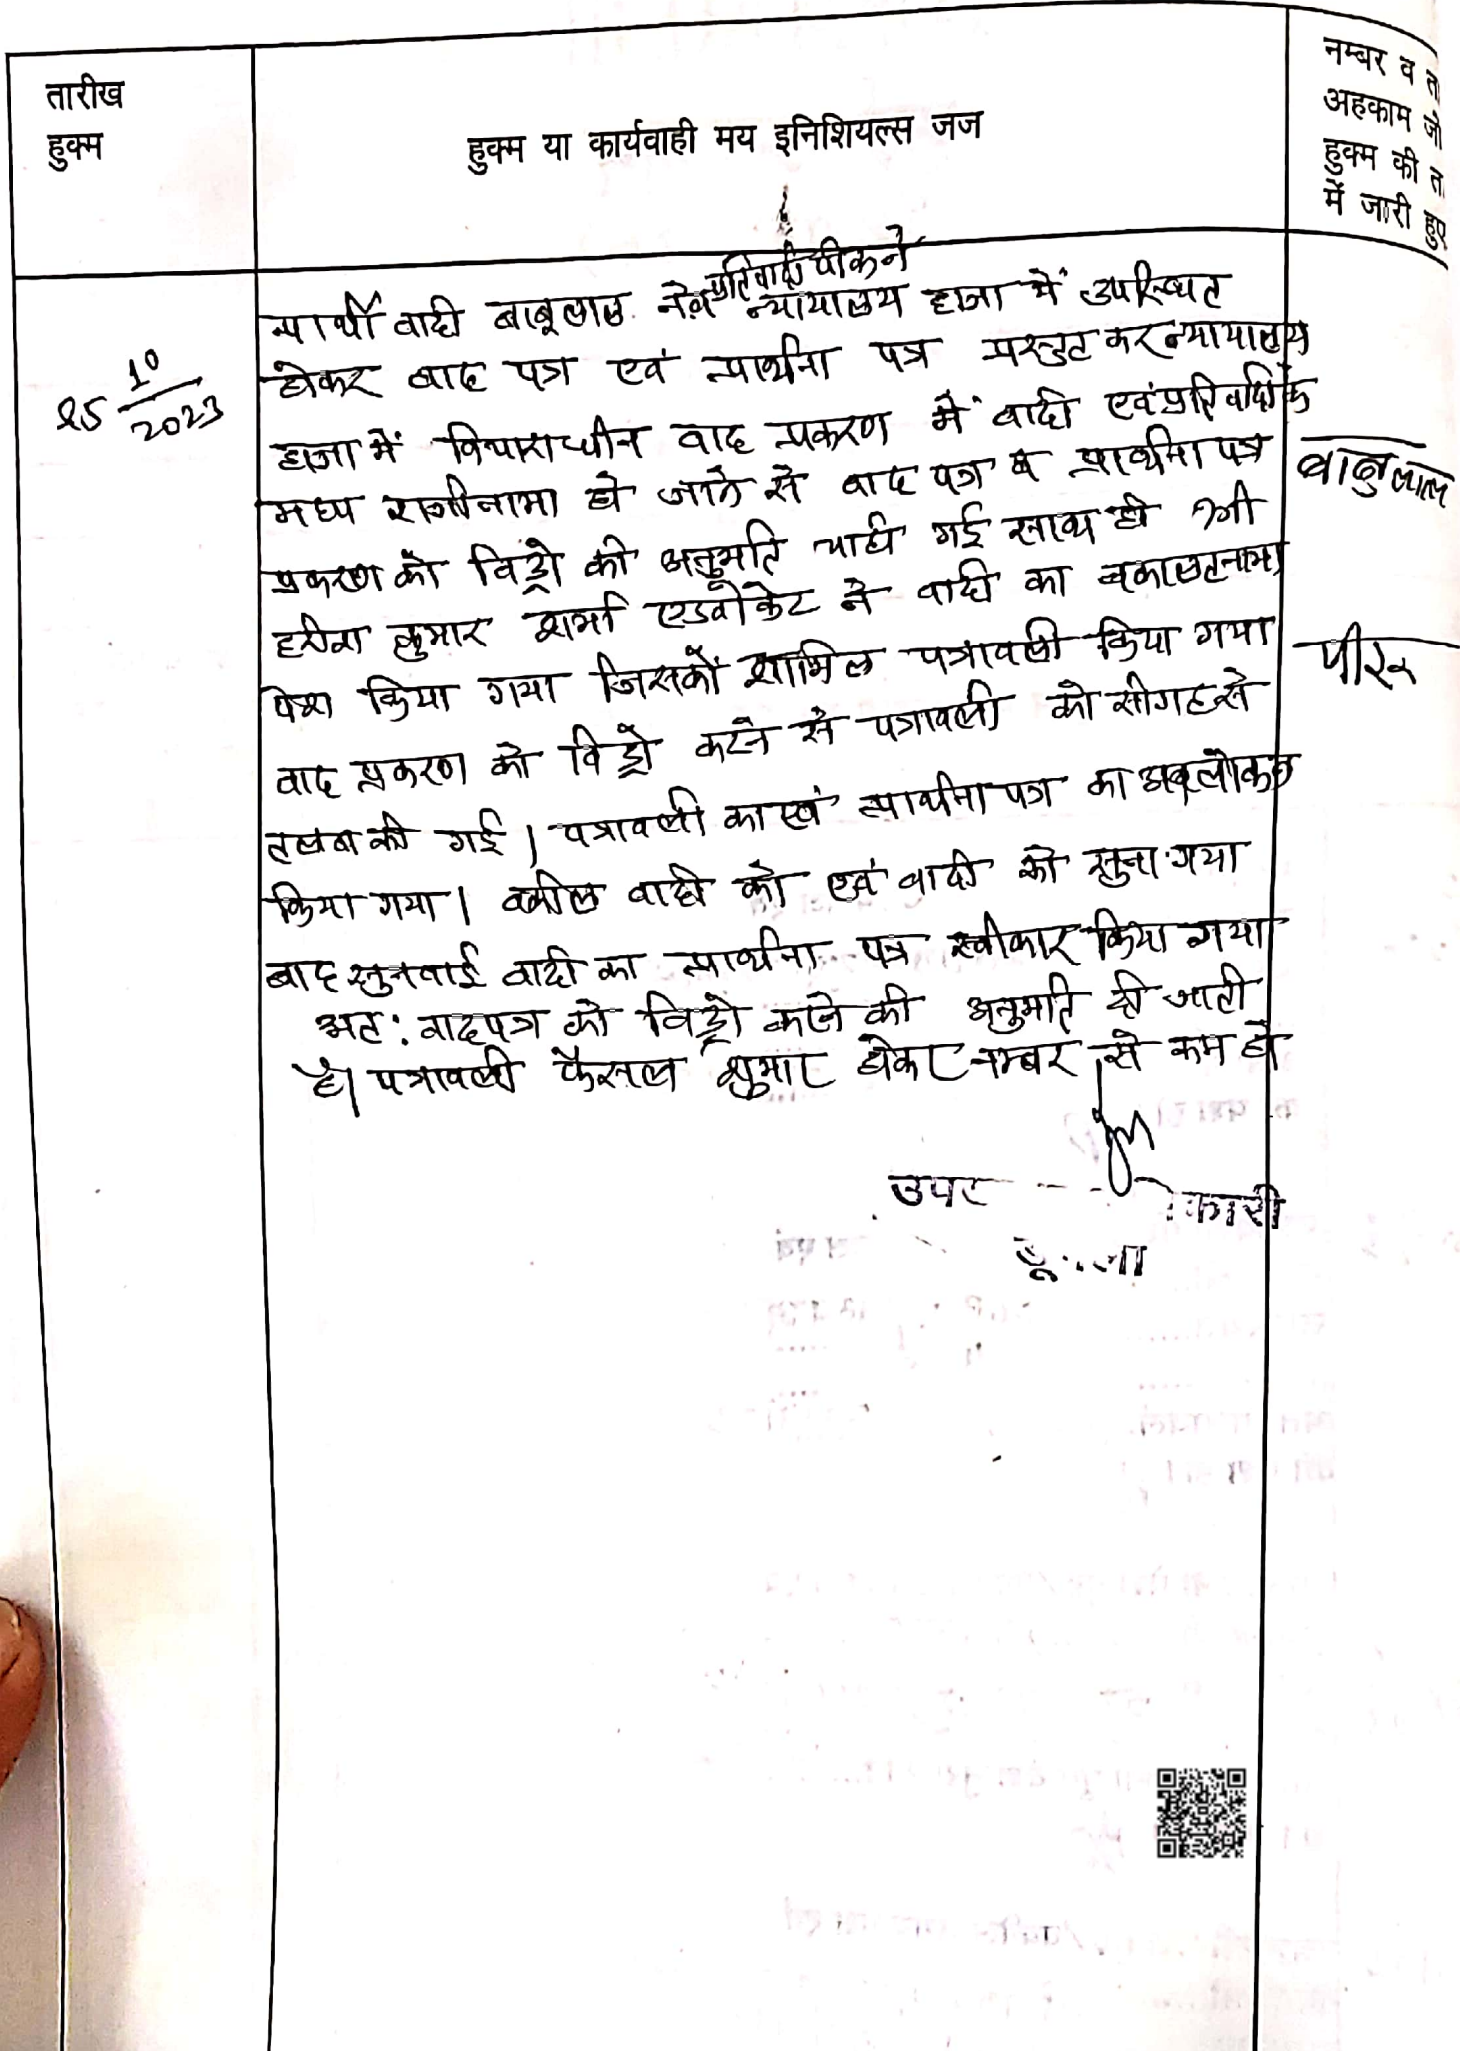 तारीख
हुक्म
हुक्म या कार्यवाही मय इनिशियल्स जज
नम्बर व त
अहकाम जो
हुक्म की त
में जारी हुए
25 10/2023
प्रतिवादी पीरू ने
प्रार्थी वादी बाबूलाल ने व न्यायालय हाजा में उपस्थित
होकर वाद पत्र एवं प्रार्थना पत्र प्रस्तुत कर न्यायालय
हाजा में विचाराधीन वाद प्रकरण में वादी एवं प्रतिवादी के
मध्य राजीनामा हो जाने से वाद पत्र व प्रार्थना पत्र
प्रकरण को विड्रो की अनुमति चाही गई साथ ही श्री
कुमार शर्मा एडवोकेट ने वादी का वकालतनामा
पेश किया गया जिसको शामिल पत्रावली किया गया
वाद प्रकरण को विड्रो करने से पत्रावली को सीगह से
तलब की गई। पत्रावली का एवं प्रार्थना पत्र का अवलोकन
किया गया। वकील वादी को एवं वादी को सुना गया
बाद सुनवाई वादी का प्रार्थना पत्र स्वीकार किया गया
अत: वादपत्र को विड्रो करने की अनुमति दी जाती
है। पत्रावली फैसल शुमार होकर नम्बर से कम हो
बाबुलाल
पीरू